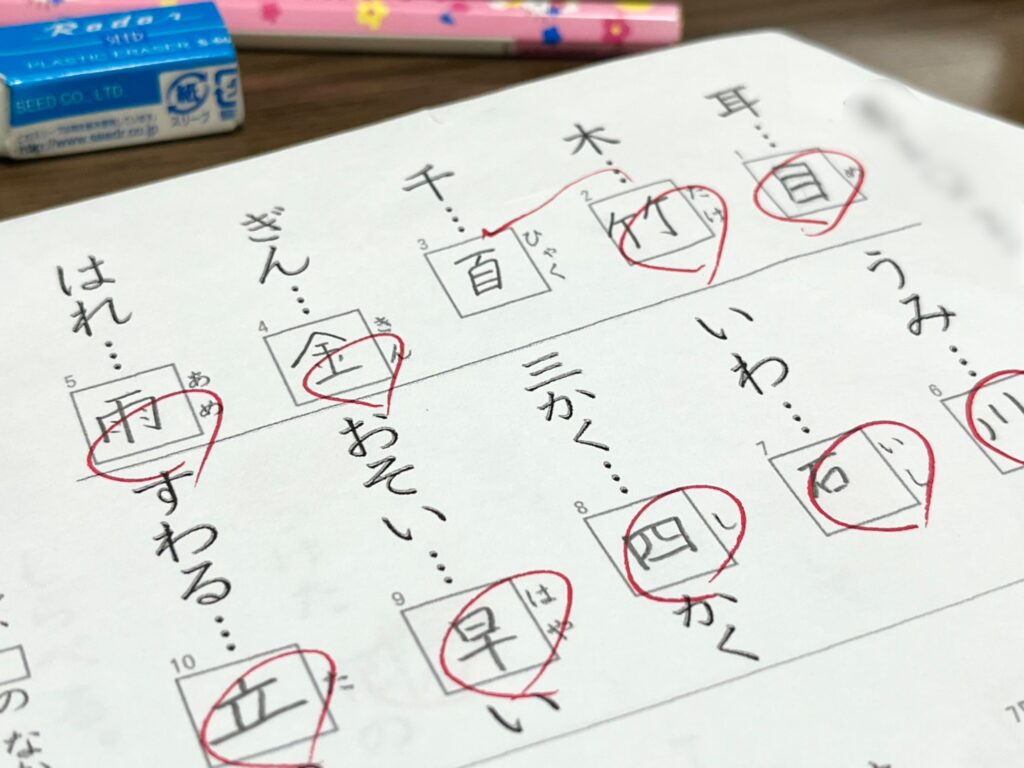 Radar
PLASTIC ERASER
SEED CO., LTD.
紙
スリーブ
http://www.seedr.co.jp
耳…目
1
め
木…竹
2
たけ
千…百
3
ひゃく
ぎん…金
4
きん
はれ…雨
5
あめ
うみ…川
6
いわ…石
7
いし
三かく…四かく
8
し
おそい…早い
9
はや
すわる…立
10
た
の